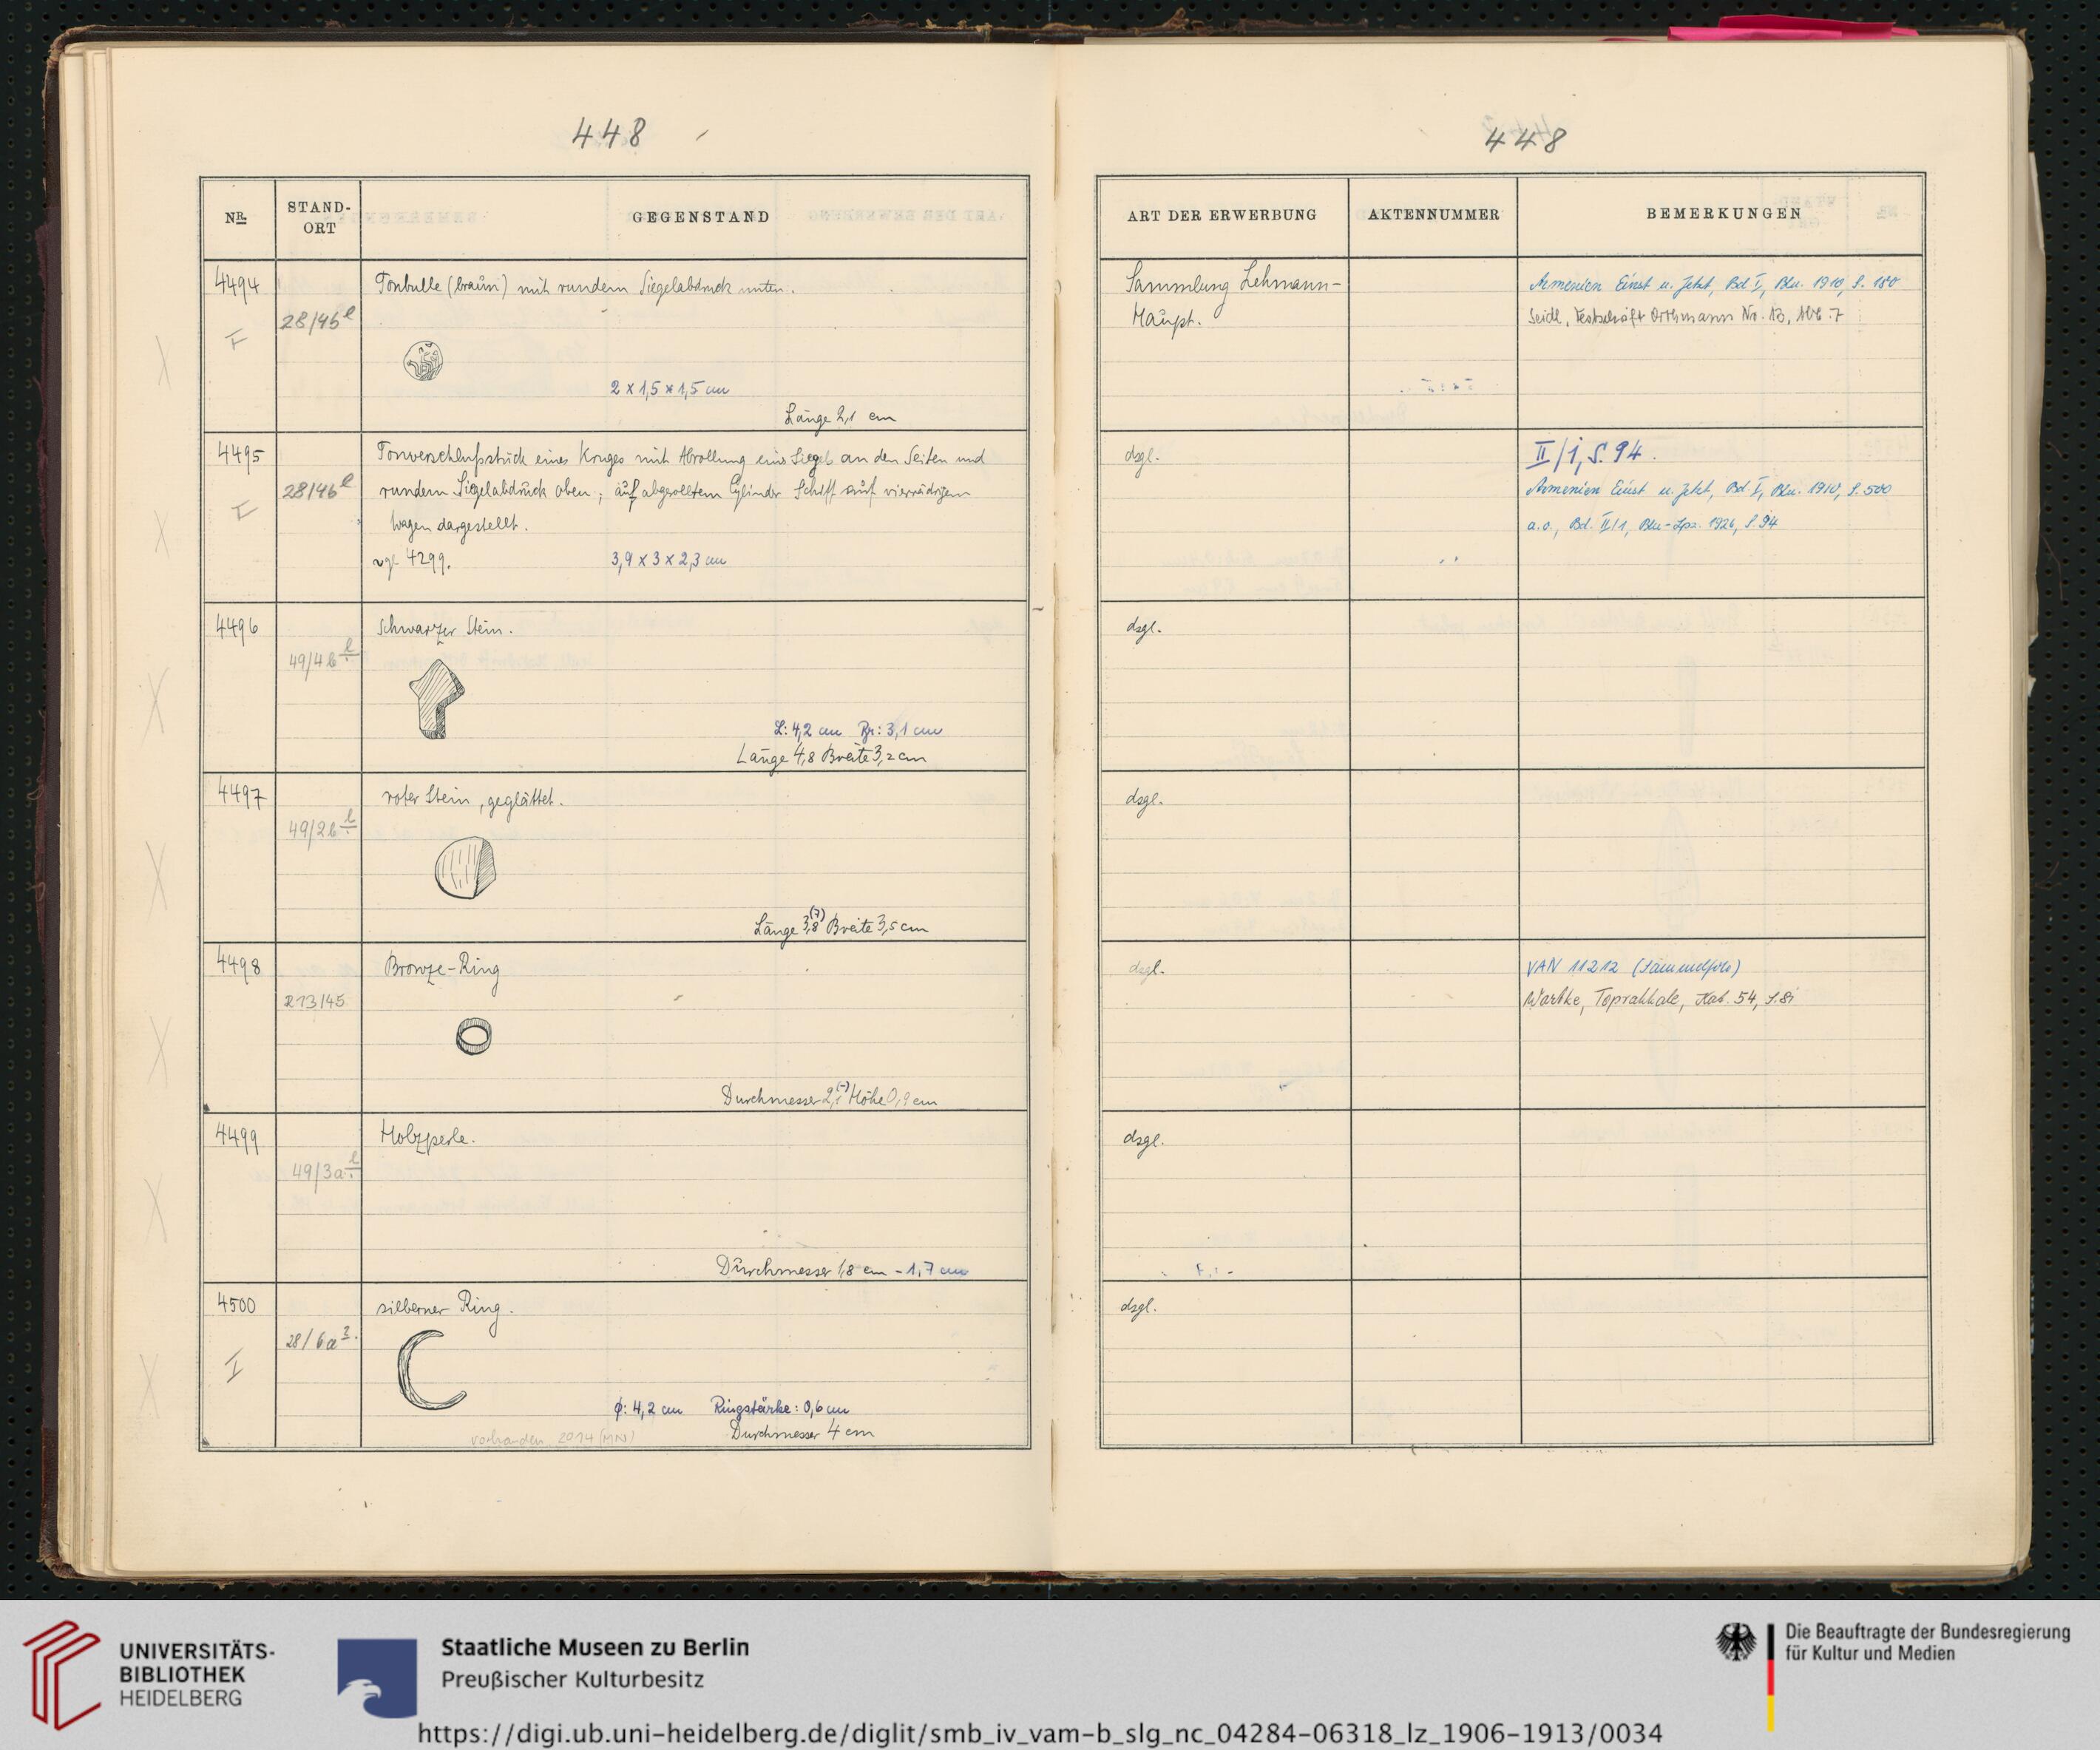 448
NR.
STAND-
ORT
GEGENSTAND
4494
28/46 l
Tonbulle (braun) mit rundem Siegelabdruck unten.
2 x 1,5 x 1,5 cm
Länge 2,1 cm
4495
28/46 l
Tonverschlußstück eines Kruges mit Abrollung eines Siegels an den Seiten und
rundem Siegelabdruck oben; auf abgerolltem Cylinder Schiff auf vierrädrigem
Wagen dargestellt.
vgl. 4299.
3,9 x 3 x 2,3 cm
4496
49/4b l
schwarzer Stein.
L: 4,2 cm Br: 3,1 cm
Länge 4,8 Breite 3,2 cm
4497
49/2b l
roter Stein, geglättet.
Länge 3,8 (7) Breite 3,5 cm
4498
R13/45
Bronze-Ring
Durchmesser 2,1 (-) Höhe 0,9 cm
4499
49/3a l
Holzperle.
Durchmesser 1,8 cm - 1,7 cm
4500
I
28/6a 3.
silberner Ring.
ϕ: 4,2 cm Ringstärke: 0,6 cm
vorhanden 2014 (MN)
Durchmesser 4 cm
448
ART DER ERWERBUNG
AKTENNUMMER
BEMERKUNGEN
Sammlung Lehmann-
Haupt.
Armenien Einst u. Jetzt, Bd I, Bln. 1910, S. 180
Seidl, Festschrift Orthmann Nr. 13, Abb. 7
dsgl.
II/1, S. 94.
Armenien Einst u. Jetzt, Bd. I, Bln. 1910, S. 500
a.o., Bd. II/1, Bln-Lpz. 1926, S. 94
dsgl.
dsgl.
dsgl.
VAN 11212 (Sammelfoto)
Wartke, Toprakkale, Kat. 54, S. 81
dsgl.
dsgl.
UNIVERSITÄTS-
BIBLIOTHEK
HEIDELBERG
Staatliche Museen zu Berlin
Preußischer Kulturbesitz
Die Beauftragte der Bundesregierung
für Kultur und Medien
https://digi.ub.uni-heidelberg.de/diglit/smb_iv_vam-b_slg_nc_04284-06318_lz_1906-1913/0034